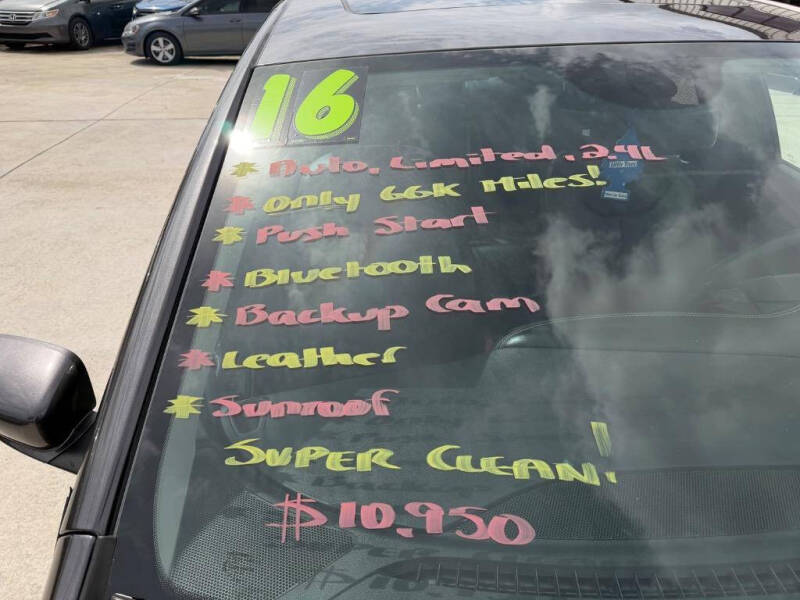 16
* Auto, Limited, 2.4L
* Only 66K Miles!
* Push Start
* Bluetooth
* Backup Cam
* Leather
* Sunroof
SUPER CLEAN!
$10,950